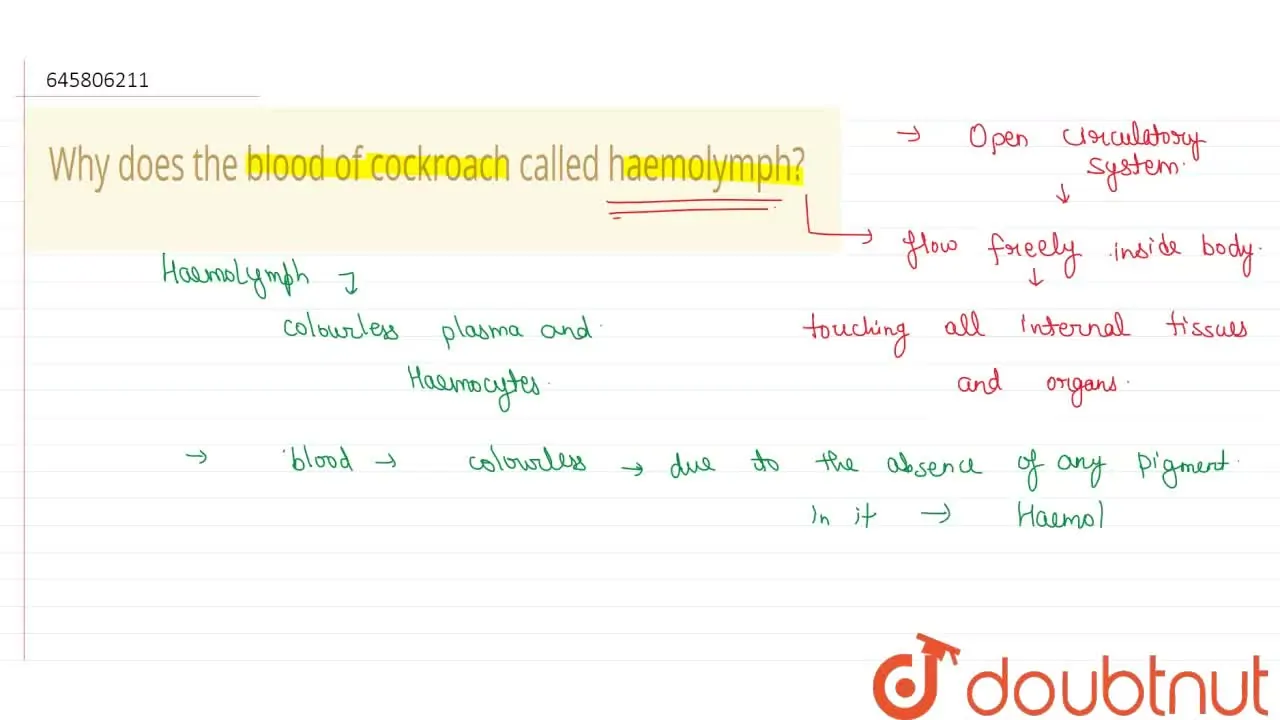 645806211
Why does the blood of cockroach called haemolymph?
→ Open circulatory
system.
↓
flow freely inside body.
↓
touching all internal tissues
and organs.
Haemolymph ↓
colourless plasma and
Haemocytes.
→ blood → colourless → due to the absence of any pigment.
In it → Haemol
doubtnut